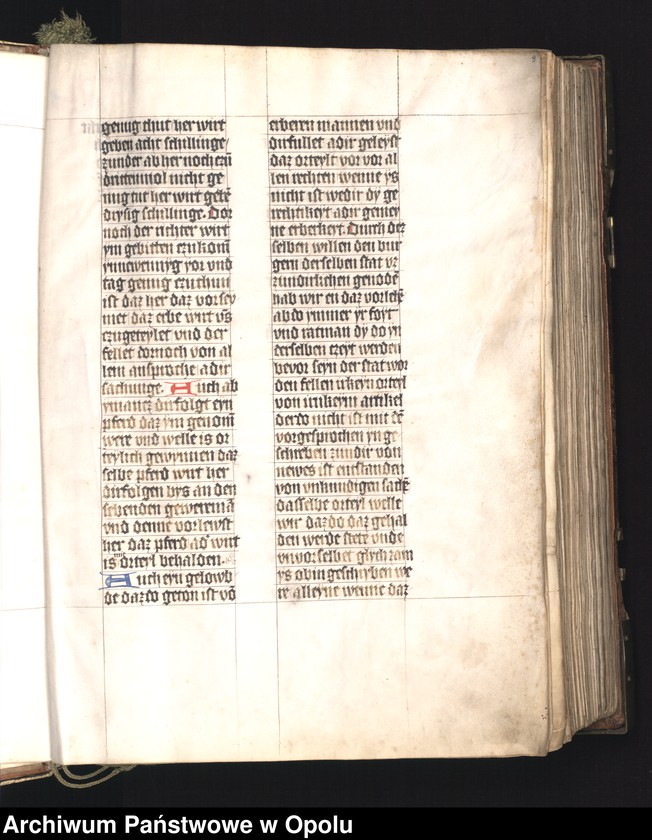 genug thut her wirt
geben acht schillinge
czunder ab her noch czū
drittenmol nicht ge
nug tut her wirt gebē
drysig schillinge. Dor
noch der richter wirt
ym gebiten czukomē
ynnewenyg vor vnd
tag genug czuthun
ist daz her daz vorsey
met daz erbe wirt vs
czugeteylet vnd der
fellet dornoch von al
lem ansproche adir
sachunge. Auch ab
ymantz dirfolgt eyn
pferd daz ym genom̄
were vnd welle is or
teylich gewynnen daz
selbe pferd wirt her
dirfolgen bys an den
gewerenmā
vnd denne vorleust
her daz pferd ad' wirt
is mit orteyl behalden.
Auch eyn gelowb
de daz do geton ist vō
erberen mannen vnd
dirfullet adir geleyst
daz orteylt vor vor al
len rechten wenne ys
nicht ist wedir dy ge
rechtikeyt adir gemey
ne erberkeyt. Durch dez
selben willen den bur
gern derselben stat vz
sunderlichen genodē
hab wir en daz vorleiē
ab do ymmer yr foyt
vnd ratman dy do yn
derselben czeyt werden
bevor seyn der stat wor
den fellen eyn orteyl
von artikel
der do nicht ist mit dē
vorgesprochen yn ge
schreben sundir von
newes ist enstanden
von vnkundigen sachē
dasselbe orteyl welle
wir daz do daz gehal
den werde stete vnde
vnvorselbet glych zam
ys obin geschryben we
re alleyne wenne daz
Archiwum Państwowe w Opolu